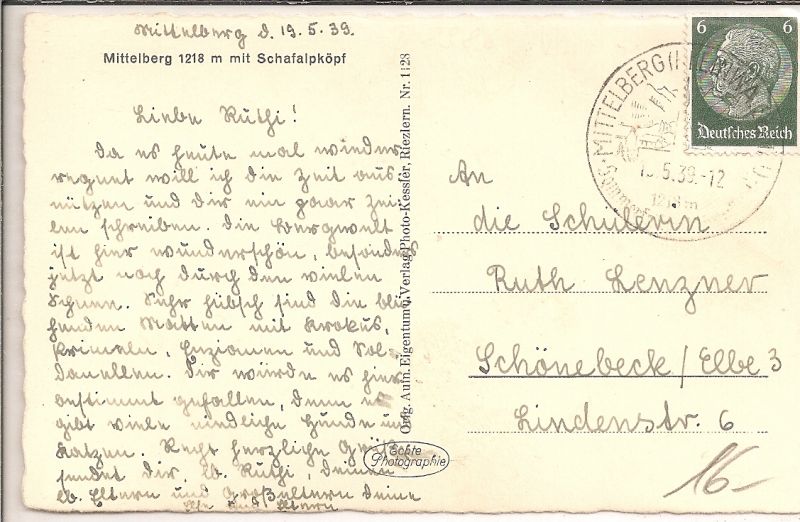 Mittelberg d. 19.5.39.
Mittelberg 1218 m mit Schafalpköpf
Liebe Ruthi!
Da es heute mal wieder
regnet will ich die Zeit aus
nützen und dir ein paar Zei
len schreiben. Die Bergwelt
ist hier wunderschön, besonders
jetzt noch durch den vielen
Schnee. Sehr hübsch sind die blü
henden Matten mit Krokus,
Primeln, Enzianen und Sol-
danellen. Dir würde es hier
bestimmt gefallen, denn es
gibt viele niedliche Hunde und
Katzen. Recht herzliche Grüße
sendet Dir, lb. Ruthi, deinen
lb. Eltern und Großeltern deine
Else und Eltern
Orig. Aufn. Eigentum u. Verlag Photo-Kessler, Riezlern. Nr. 1128
Echte
Photographie
6 6
Deutsches Reich
MITTELBERG
5.39.-12
1218 m
An
die Schülerin
Ruth Lenzner
Schönebeck/Elbe 3
Lindenstr. 6
16-